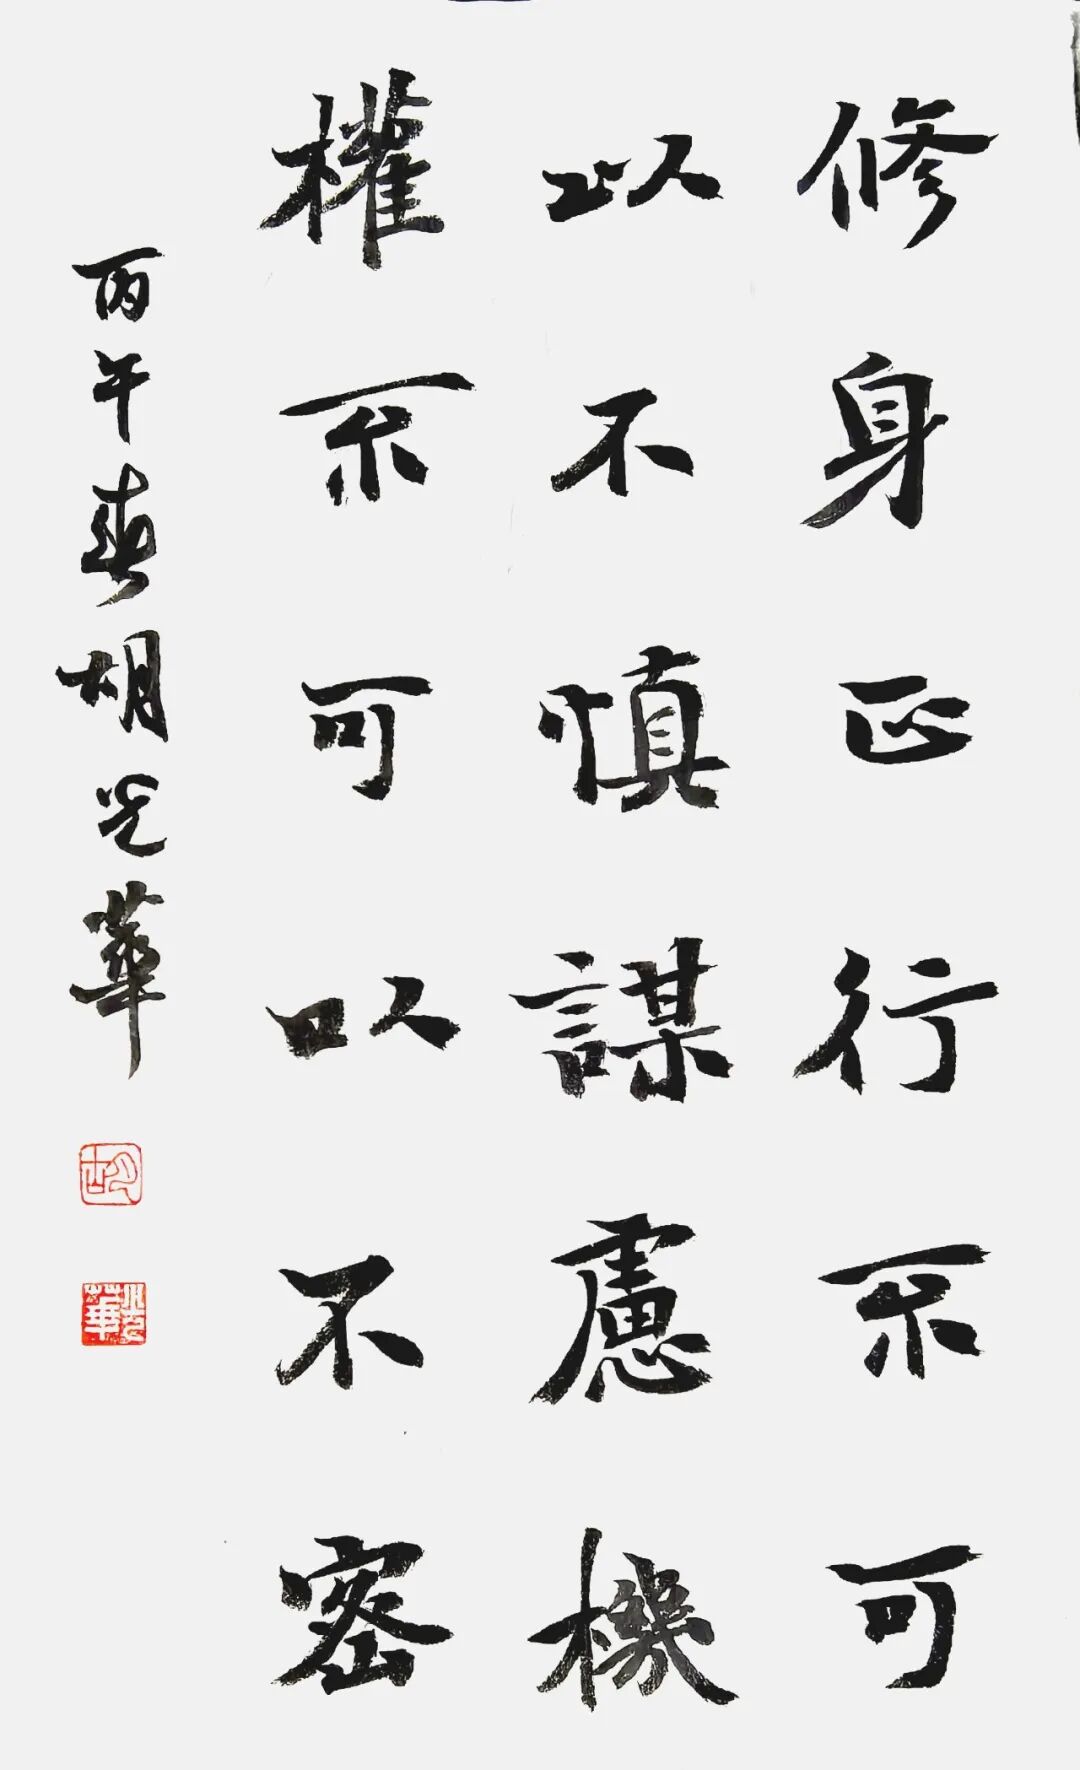 修身正行不可
以不慎謀慮機
權不可以不密
丙午春胡光華
胡
光華